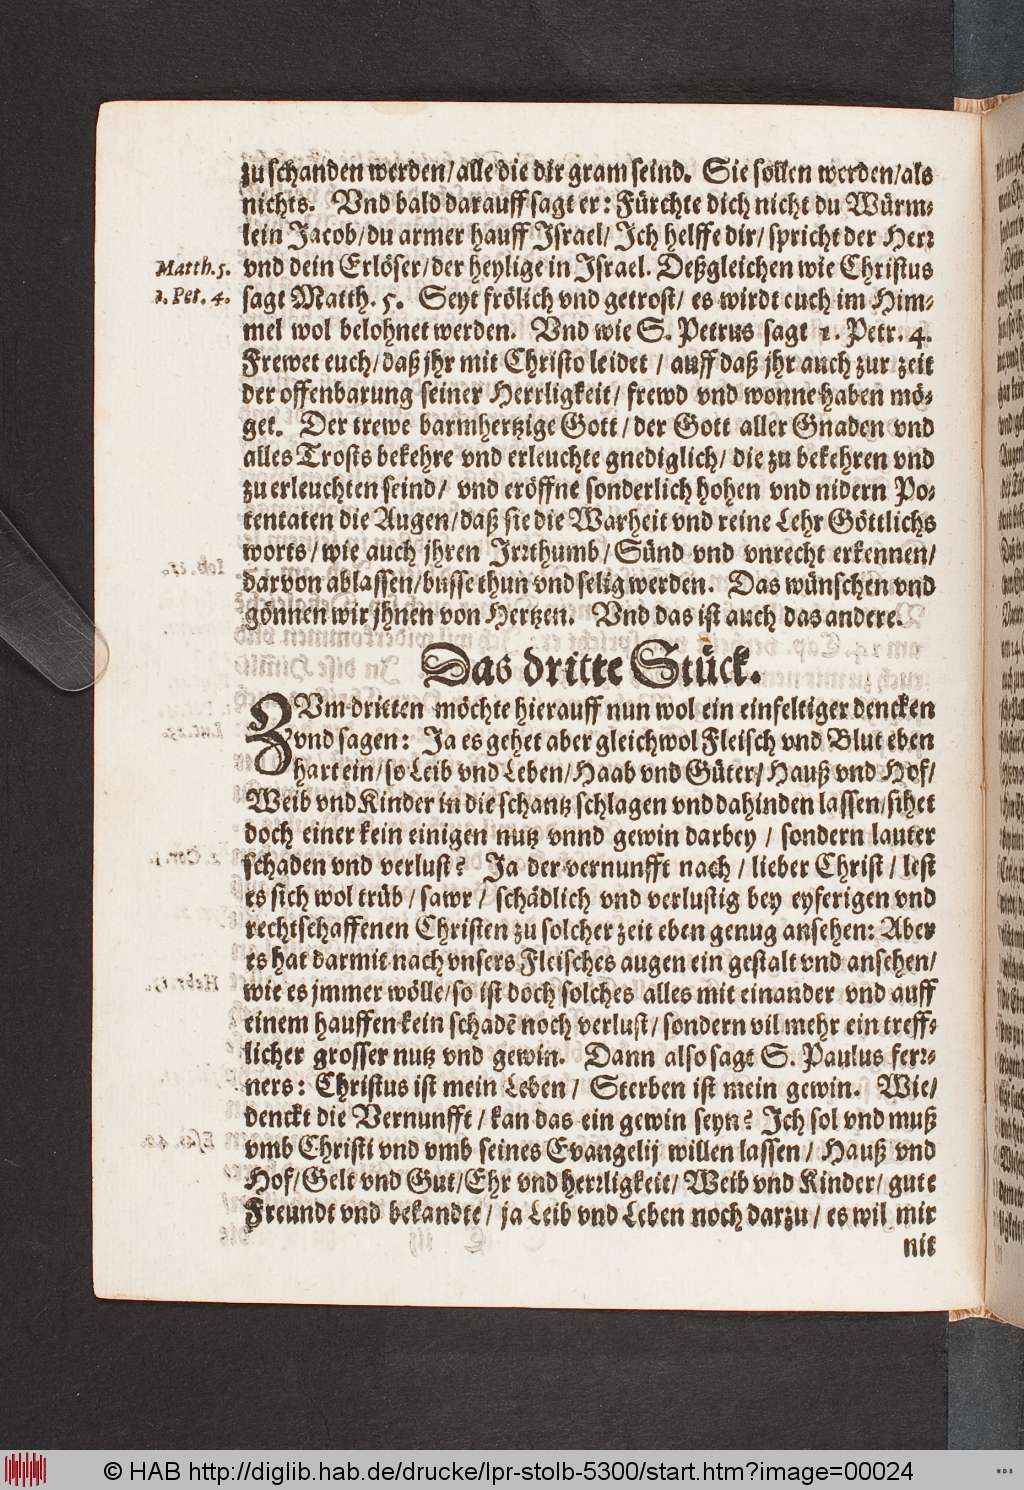 zu schanden werden/ alle die dir gram seind. Sie sollen werden/ als
nichts. Vnd bald darauff sagt er: Fürchte dich nicht du Würm-
lein Jacob/ du armer hauff Israel/ Ich helffe dir/ spricht der Herr
Matth. 5.
vnd dein Erlöser/ der heylige in Israel. Deßgleichen wie Christus
1. Pet. 4.
sagt Matth. 5. Seyt frölich vnd getrost/ es wirdt euch im Him-
mel wol belohnet werden. Vnd wie S. Petrus sagt 1. Petr. 4.
Frewet euch/ daß jhr mit Christo leidet / auff daß jhr auch zur zeit
der offenbarung seiner Herrligkeit/ frewd vnd wonne haben mö-
get. Der trewe barmhertzige Gott/ der Gott aller Gnaden vnd
alles Trosts bekehre vnd erleuchte gnediglich/ die zu bekehren vnd
zu erleuchten seind/ vnd eröffne sonderlich hohen vnd nidern Po-
tentaten die Augen/ daß sie die Warheit vnd reine Lehr Göttlichs
worts/ wie auch jhren Irrthumb/ Sünd vnd vnrecht erkennen/
darvon ablassen/ busse thun vnd selig werden. Das wünschen vnd
gönnen wir jhnen von Hertzen. Vnd das ist auch das andere.
Das dritte Stück.
ZVm dritten möchte hierauff nun wol ein einfeltiger dencken
vnd sagen: Ja es gehet aber gleichwol Fleisch vnd Blut eben
hart ein/ so Leib vnd Leben/ Haab vnd Güter/ Hauß vnd Hof/
Weib vnd Kinder in die schantz schlagen vnd dahinden lassen/ sihet
doch einer kein einigen nutz vnnd gewin darbey / sondern lauter
schaden vnd verlust? Ja der vernunfft nach / lieber Christ / lest
es sich wol trüb / sawr / schädlich vnd verlustig bey eyferigen vnd
rechtschaffenen Christen zu solcher zeit eben genug ansehen: Aber
es hat darmit nach vnsers Fleisches augen ein gestalt vnd ansehen/
wie es jmmer wölle/ so ist doch solches alles mit einander vnd auff
einem hauffen kein schadẽ noch verlust/ sondern vil mehr ein treff-
licher grosser nutz vnd gewin. Dann also sagt S. Paulus ferr-
ners: Christus ist mein Leben/ Sterben ist mein gewin. Wie/
denckt die Vernunfft / kan das ein gewin seyn? Ich sol vnd muß
vmb Christi vnd vmb seines Evangelij willen lassen/ Hauß vnd
Hof/ Gelt vnd Gut/ Ehr vnd herrligkeit/ Weib vnd Kinder/ gute
Freundt vnd bekandte/ ja Leib vnd Leben noch darzu/ es wil mir
nit
© HAB http://diglib.hab.de/drucke/lpr-stolb-5300/start.htm?image=00024